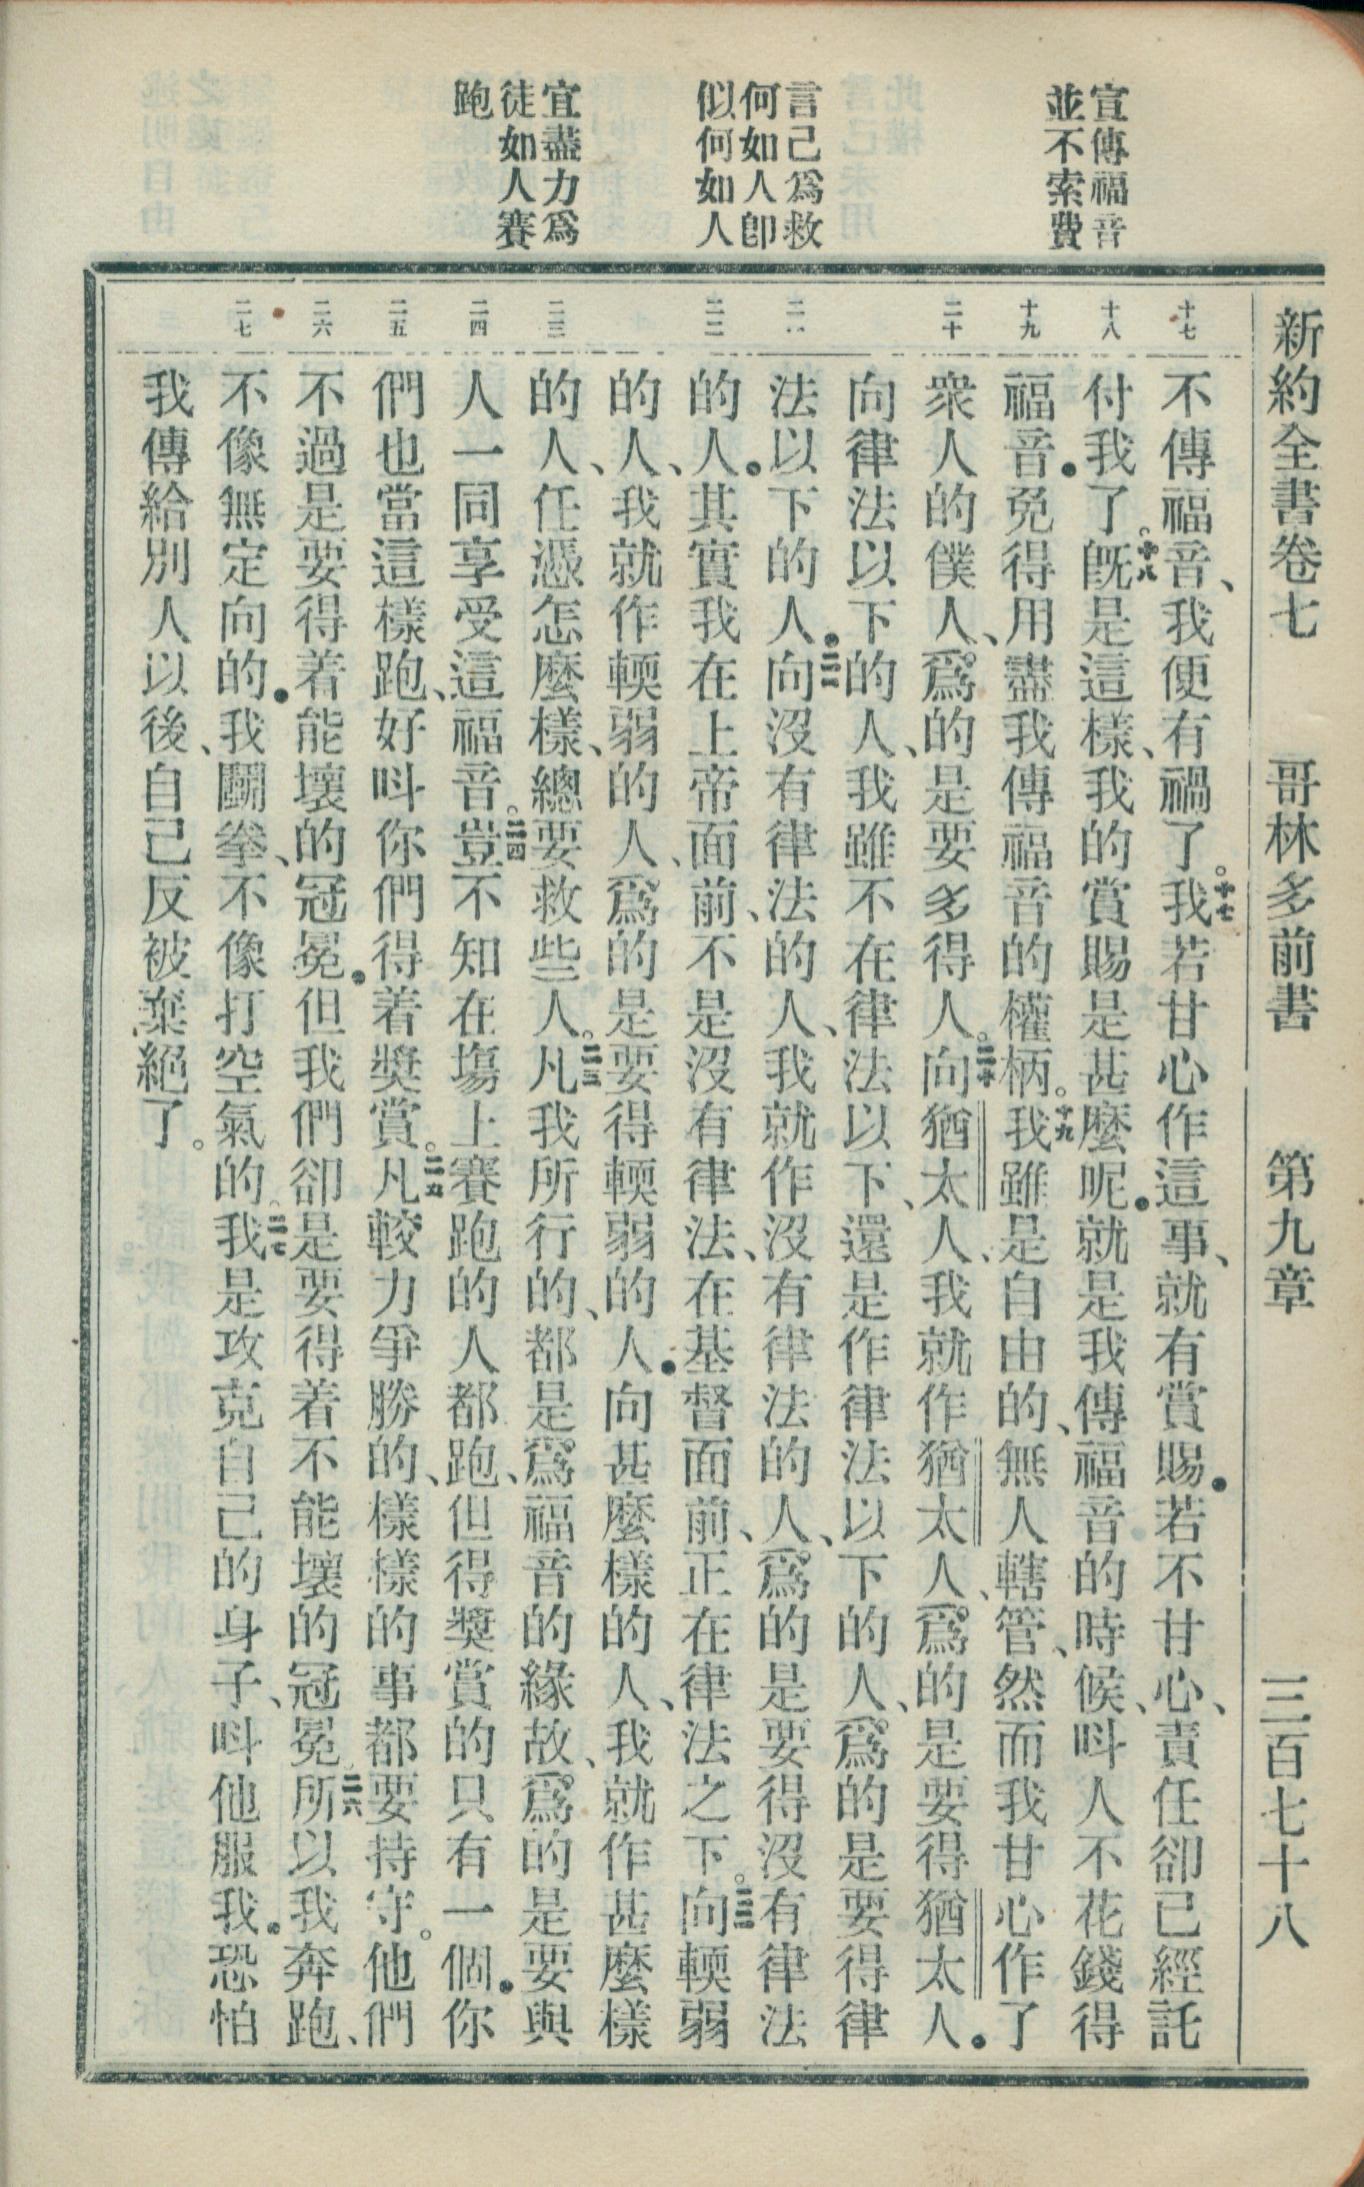 新約全書卷七　哥林多前書　第九章　三百七十八
宣傳福音
並不索費
言己爲救
何如人卽
似何如人
宜盡力爲
徒如人賽
跑
十七
十八
十九
二十
二一
二二
二三
二四
二五
二六
二七
不傳福音、我便有禍了。十七我若甘心作這事、就有賞賜．若不甘心、責任卻已經託
付我了。十八旣是這樣、我的賞賜是甚麼呢．就是我傳福音的時候、呌人不花錢得
福音．免得用盡我傳福音的權柄。十九我雖是自由的、無人轄管、然而我甘心作了
衆人的僕人、爲的是要多得人。二十向猶太人、我就作猶太人、爲的是要得猶太人．
向律法以下的人、我雖不在律法以下、還是作律法以下的人、爲的是要得律
法以下的人．二一向沒有律法的人、我就作沒有律法的人、爲的是要得沒有律法
的人．其實我在上帝面前、不是沒有律法、在基督面前、正在律法之下。二二向輭弱
的人、我就作輭弱的人、爲的是要得輭弱的人．向甚麼樣的人、我就作甚麼樣
的人、任憑怎麼樣、總要救些人。二三凡我所行的、都是爲福音的緣故、爲的是要與
人一同享受這福音。二四豈不知在塲上賽跑的人都跑、但得獎賞的只有一個．你
們也當這樣跑、好呌你們得着獎賞。二五凡較力爭勝的、樣樣的事都要持守。他們
不過是要得着能壞的冠冕．但我們卻是要得着不能壞的冠冕。二六所以我奔跑、
不像無定向的．我鬬拳、不像打空氣的。二七我是攻克自己的身子、呌他服我．恐怕
我傳給別人以後、自己反被棄絕了。